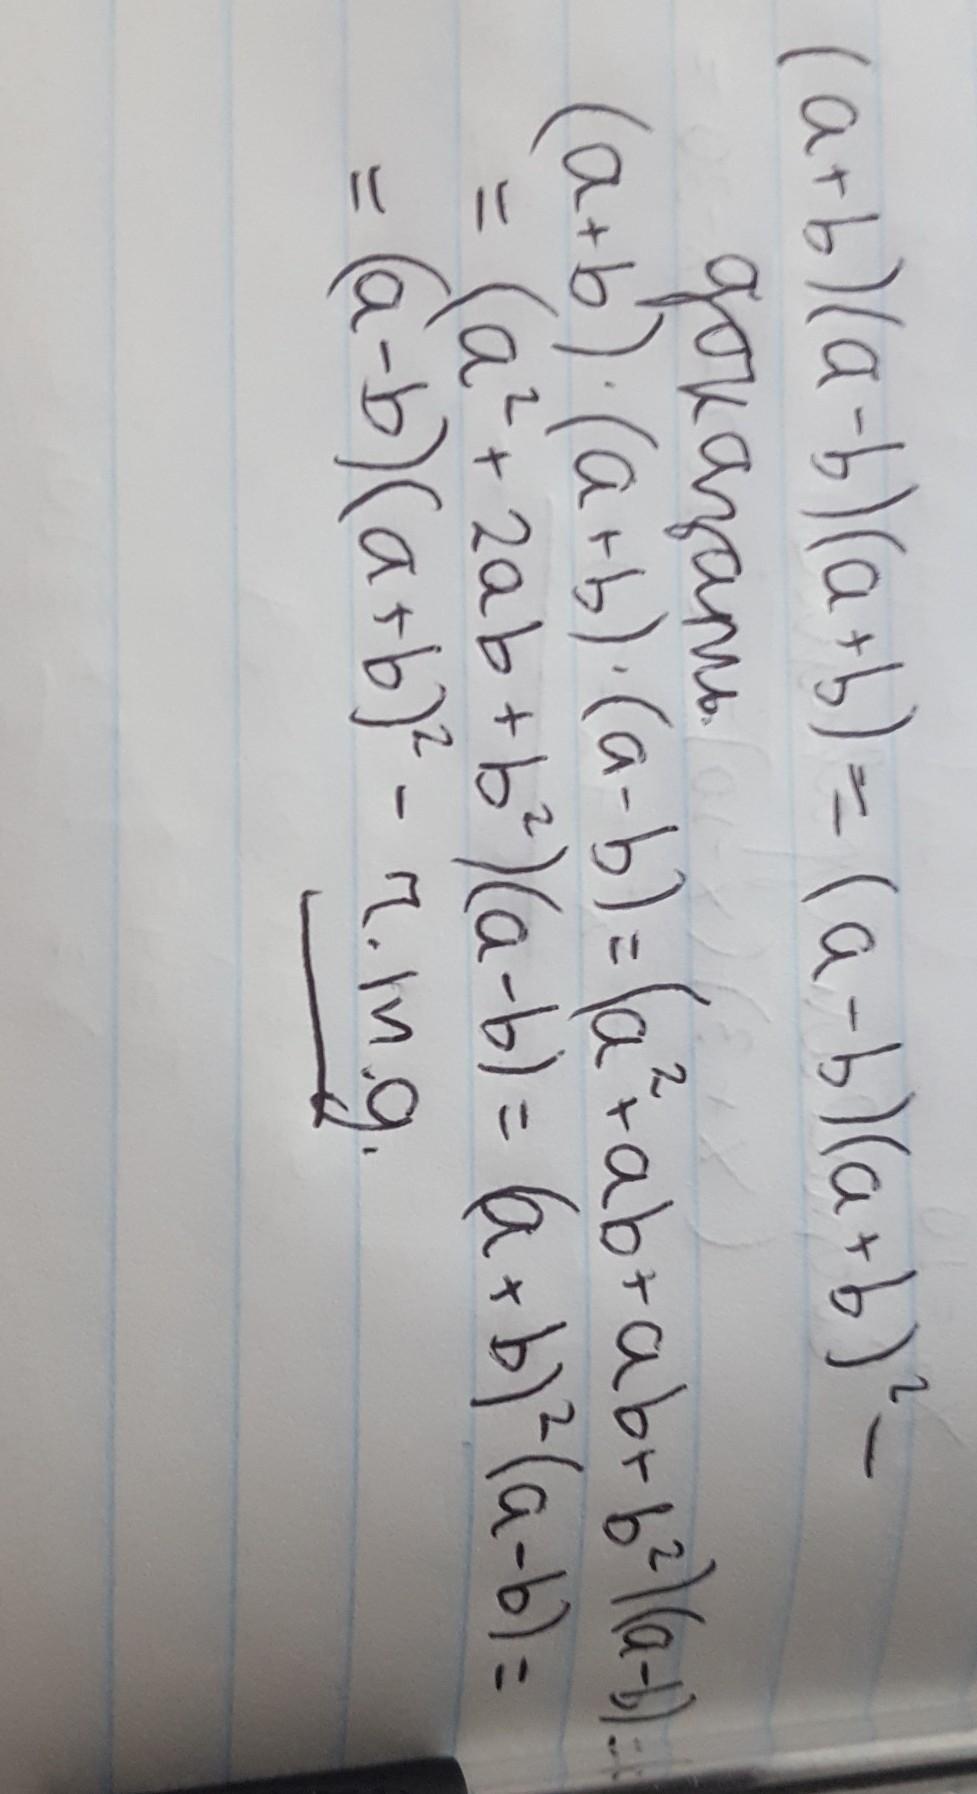 (a+b)(a-b)(a+b) = (a-b)(a+b)² -
доказать.
(a+b)·(a+b)·(a-b)=(a²+ab+ab+b²)(a-b)=
=(a²+2ab+b²)(a-b)=(a+b)²(a-b)=
=(a-b)(a+b)² - ч.т.д.